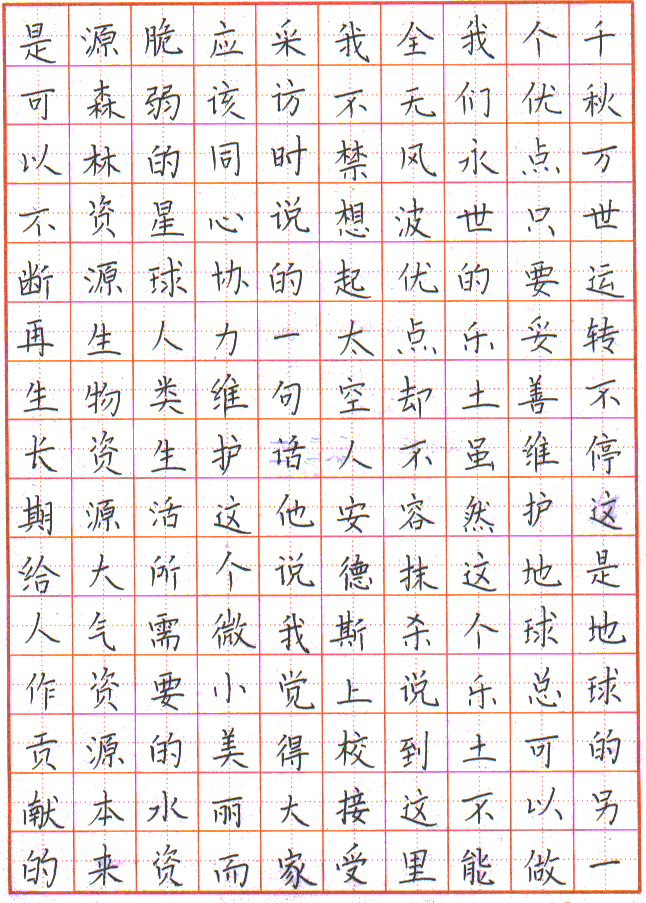 千秋万世运转不停这是地球的另一
个优点只要妥善维护地球总可以做
我们永世的乐土虽然这个乐土不能
全无风波优点却不容抹杀说到这里
我不禁想起太空人安德斯上校接受
采访时说的一句话他说我觉得大家
应该同心协力维护这个微小美丽而
脆弱的星球人类生活所需要的水资
源森林资源生物资源大气资源本来
是可以不断再生长期给人作贡献的